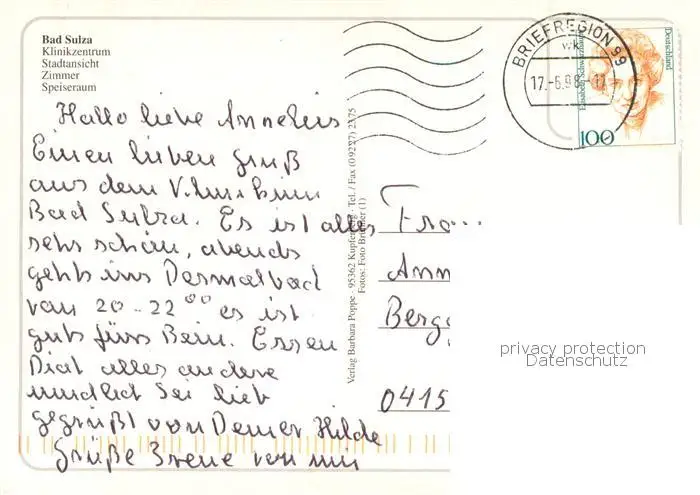 Bad Sulza
Klinikzentrum
Stadtansicht
Zimmer
Speiseraum
BRIEFREGION 99
wk
17.-6.98-17
Deutschland
Elisabeth Schwarzhaupt
100
Hallo liebe Annelies
Einen lieben Gruß
aus dem
Bad Sulza. Es ist alles
sehr schön, abends
gehts ins Dermalbad
von 20-22⁰⁰ es ist
guts fürs Bein. Essen
Diat alles andere
mündlich Sei lieb
gegrüßt von Deiner Hilde
Grüße Irene von mir
Verlag Barbara Poppe · 95362 Kupferberg · Tel. / Fax (09227) 2375
Fotos: Foto (1)
Fra...
Ann
Berg
0415
privacy protection
Datenschutz